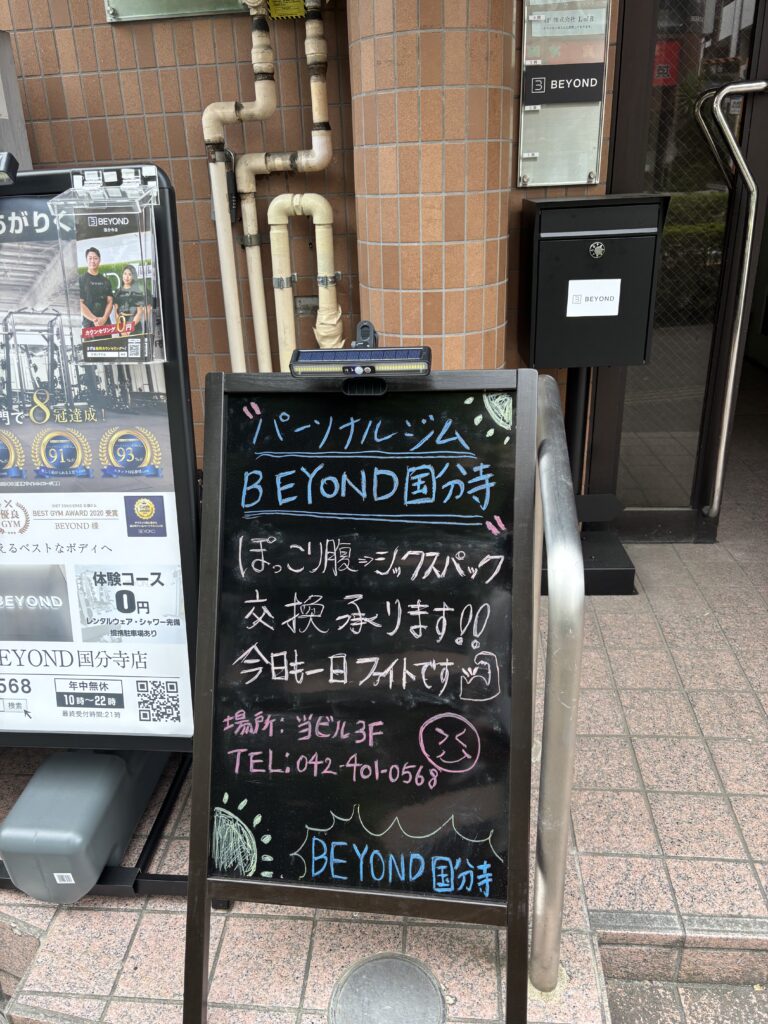 BEYOND
BEYOND
カウンセリング0円
門で8冠達成!
91
93
BEST GYM AWARD 2020 受賞
BEYOND 様
えるベストなボディへ
BEYOND
体験コース
0円
レンタルウェア・シャワー完備
提携駐車場あり
BEYOND国分寺店
568
年中無休
10時〜22時
検索
最終受付時間:21時
パーソナルジム
BEYOND国分寺
ぽっこり腹⇒シックスパック
交換承ります!!
今日も一日ファイトです
場所: 当ビル3F
TEL: 042-401-0568
BEYOND国分寺
BEYOND